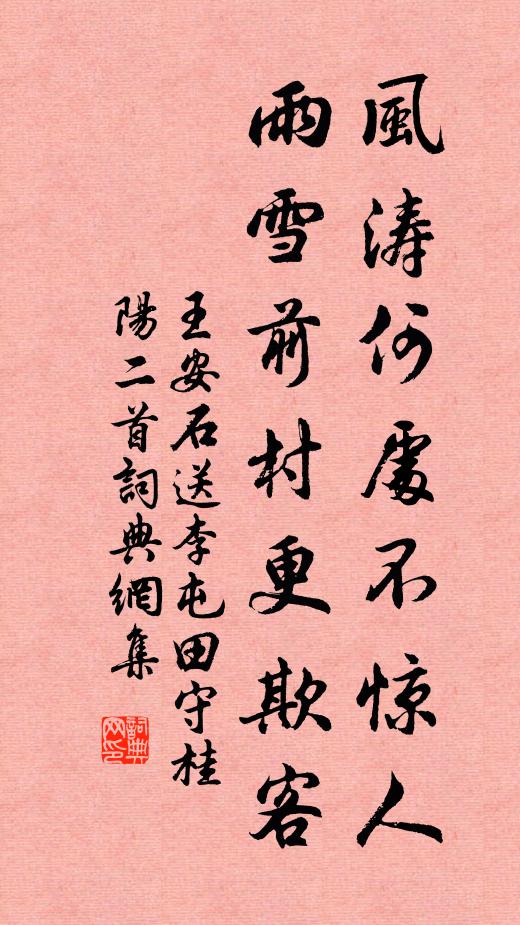 風涛何處不惊人
雨雪前村更欺客
王安石送李屯田守桂
陽二首詞典網集
詞典网印